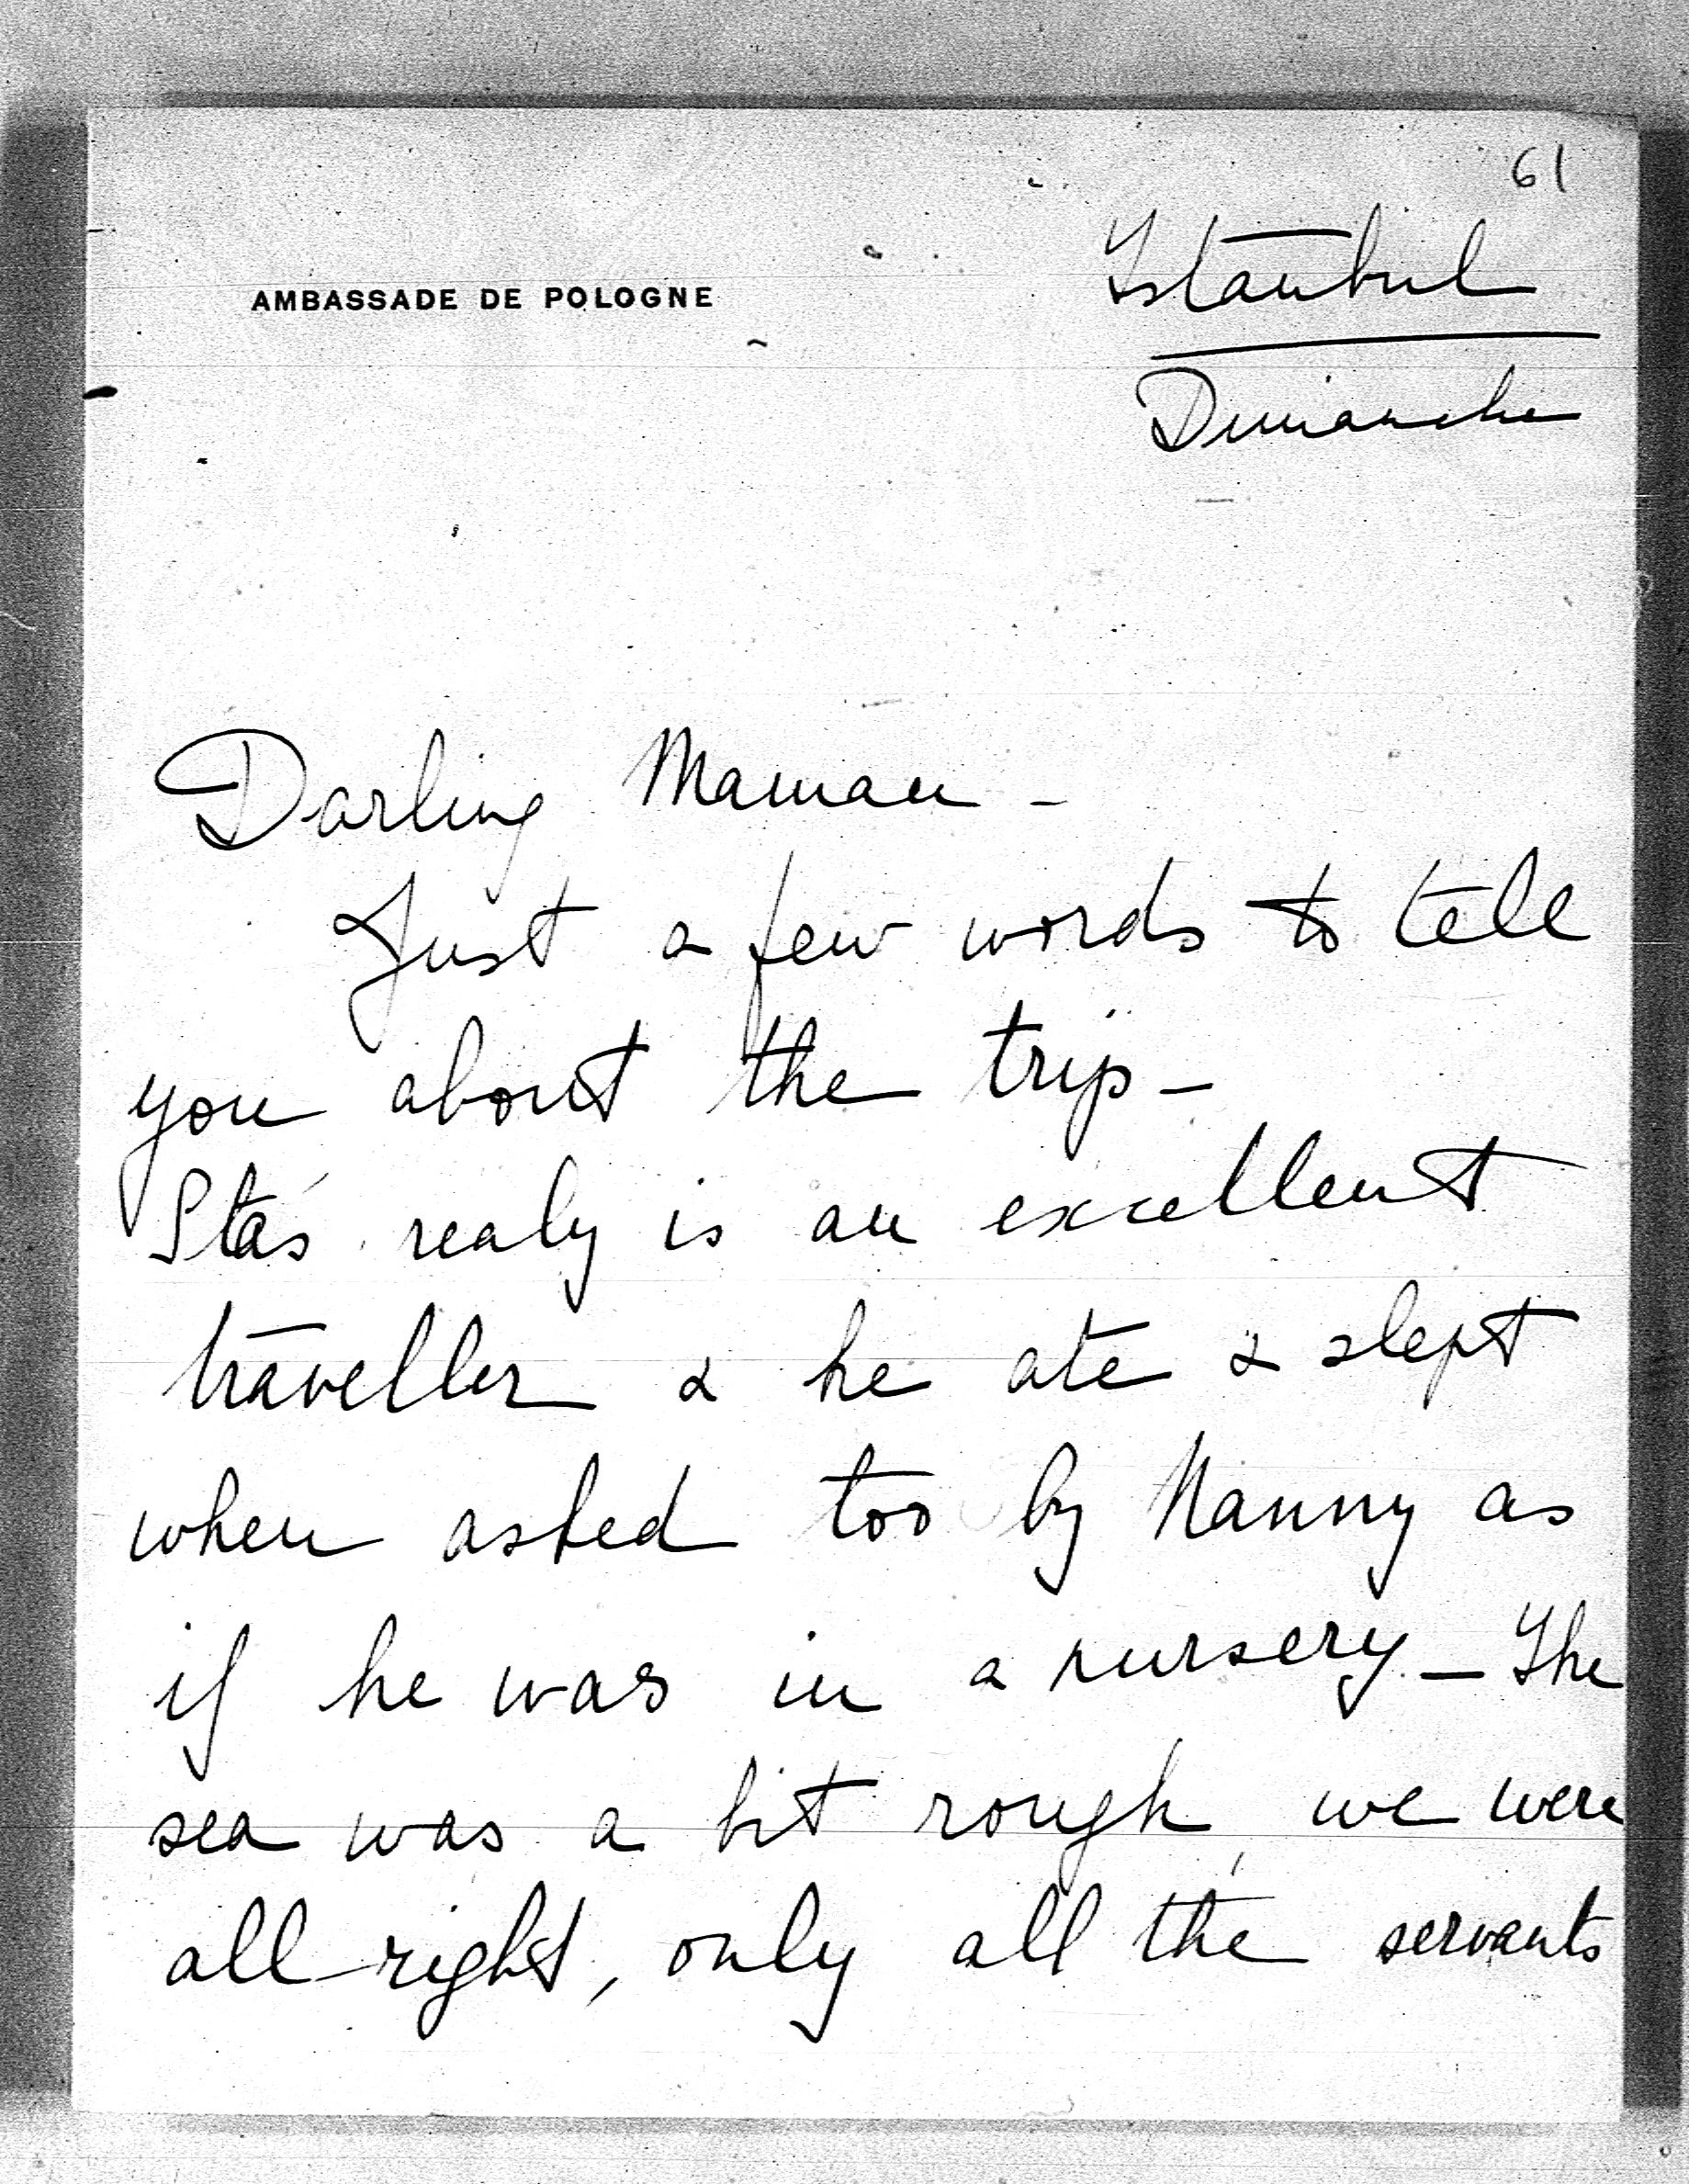 61
Istanbul
AMBASSADE DE POLOGNE
Dimanche
Darling Maman -
Just a few words to tell
you about the trip -
Staś realy is an excellent
traveller & he ate & slept
when asked too by Nanny as
if he was in a nursery - The
sea was a bit rough, we were
all right, only all the servants